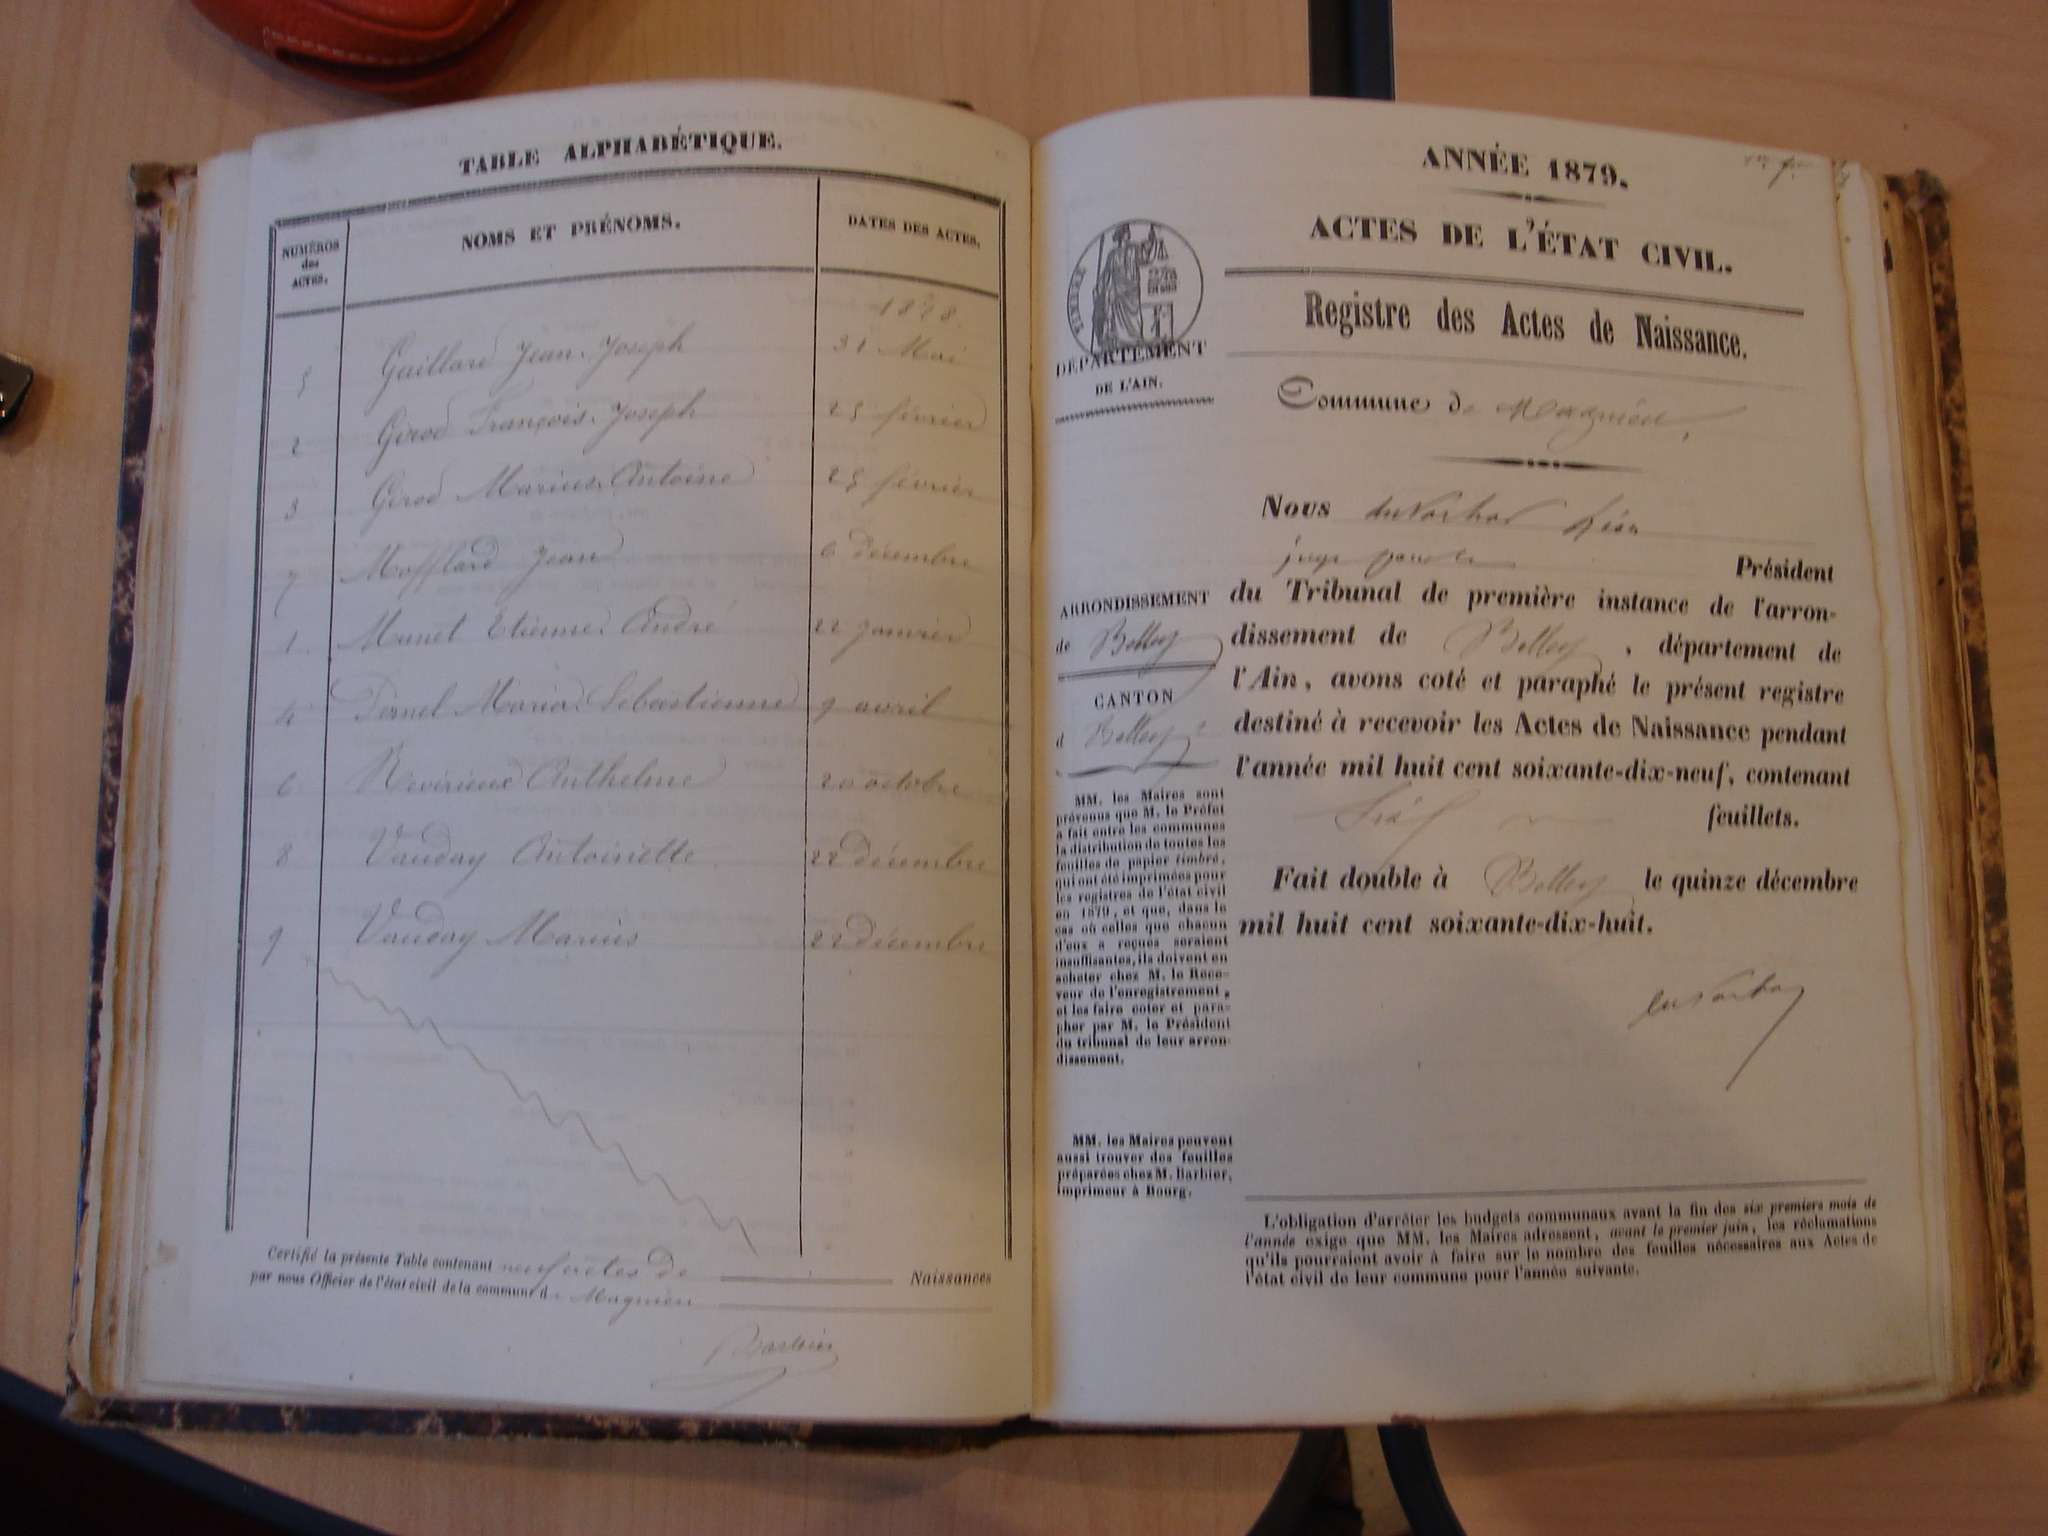 TABLE ALPHABÉTIQUE.
NUMÉROS
des
ACTES.
NOMS ET PRÉNOMS.
DATES DES ACTES.
1878.
5 Gaillard Jean-Joseph 31 Mai
2 Girod François-Joseph 25 février
3 Girod Marius-Antoine 25 février
7 Mofflard Jean 6 décembre
1 Munet Etienne-André 22 janvier
4 Pernel Maria-Sébastienne 9 avril
6 Revirieux Anthelme 20 octobre
8 Vauday Antoinette 22 décembre
9 Vauday Marius 22 décembre
Certifié la présente Table contenant neuf actes de Naissances
par nous Officier de l'état civil de la commune de Magnieu
Barbier
ANNÉE 1879.
ACTES DE L'ÉTAT CIVIL.
Registre des Actes de Naissance.
DÉPARTEMENT
DE L'AIN.
Commune de Magnieu,
Nous
Président
du Tribunal de première instance de l'arron-
dissement de Belley, département de
l'Ain, avons coté et paraphé le présent registre
destiné à recevoir les Actes de Naissance pendant
l'année mil huit cent soixante-dix-neuf, contenant
feuillets.
Fait double à Belley le quinze décembre
mil huit cent soixante-dix-huit.
ARRONDISSEMENT
de Belley
CANTON
d Belley
MM. les Maires sont
prévenus que M. le Préfet
a fait entre les communes
la distribution de toutes les
feuilles de papier timbré,
qui ont été imprimées pour
les registres de l'état civil
en 1879, et que, dans le
cas où celles que chacun
d'eux a reçues seraient
insuffisantes, ils doivent en
acheter chez M. le Rece-
veur de l'enregistrement,
et les faire coter et para-
pher par M. le Président
du tribunal de leur arron-
dissement.
MM. les Maires peuvent
aussi trouver des feuilles
préparées chez M. Barbier,
imprimeur à Bourg.
L'obligation d'arrêter les budgets communaux avant la fin des six premiers mois de
l'année exige que MM. les Maires adressent, avant le premier juin, les réclamations
qu'ils pourraient avoir à faire sur le nombre des feuilles nécessaires aux Actes de
l'état civil de leur commune pour l'année suivante.